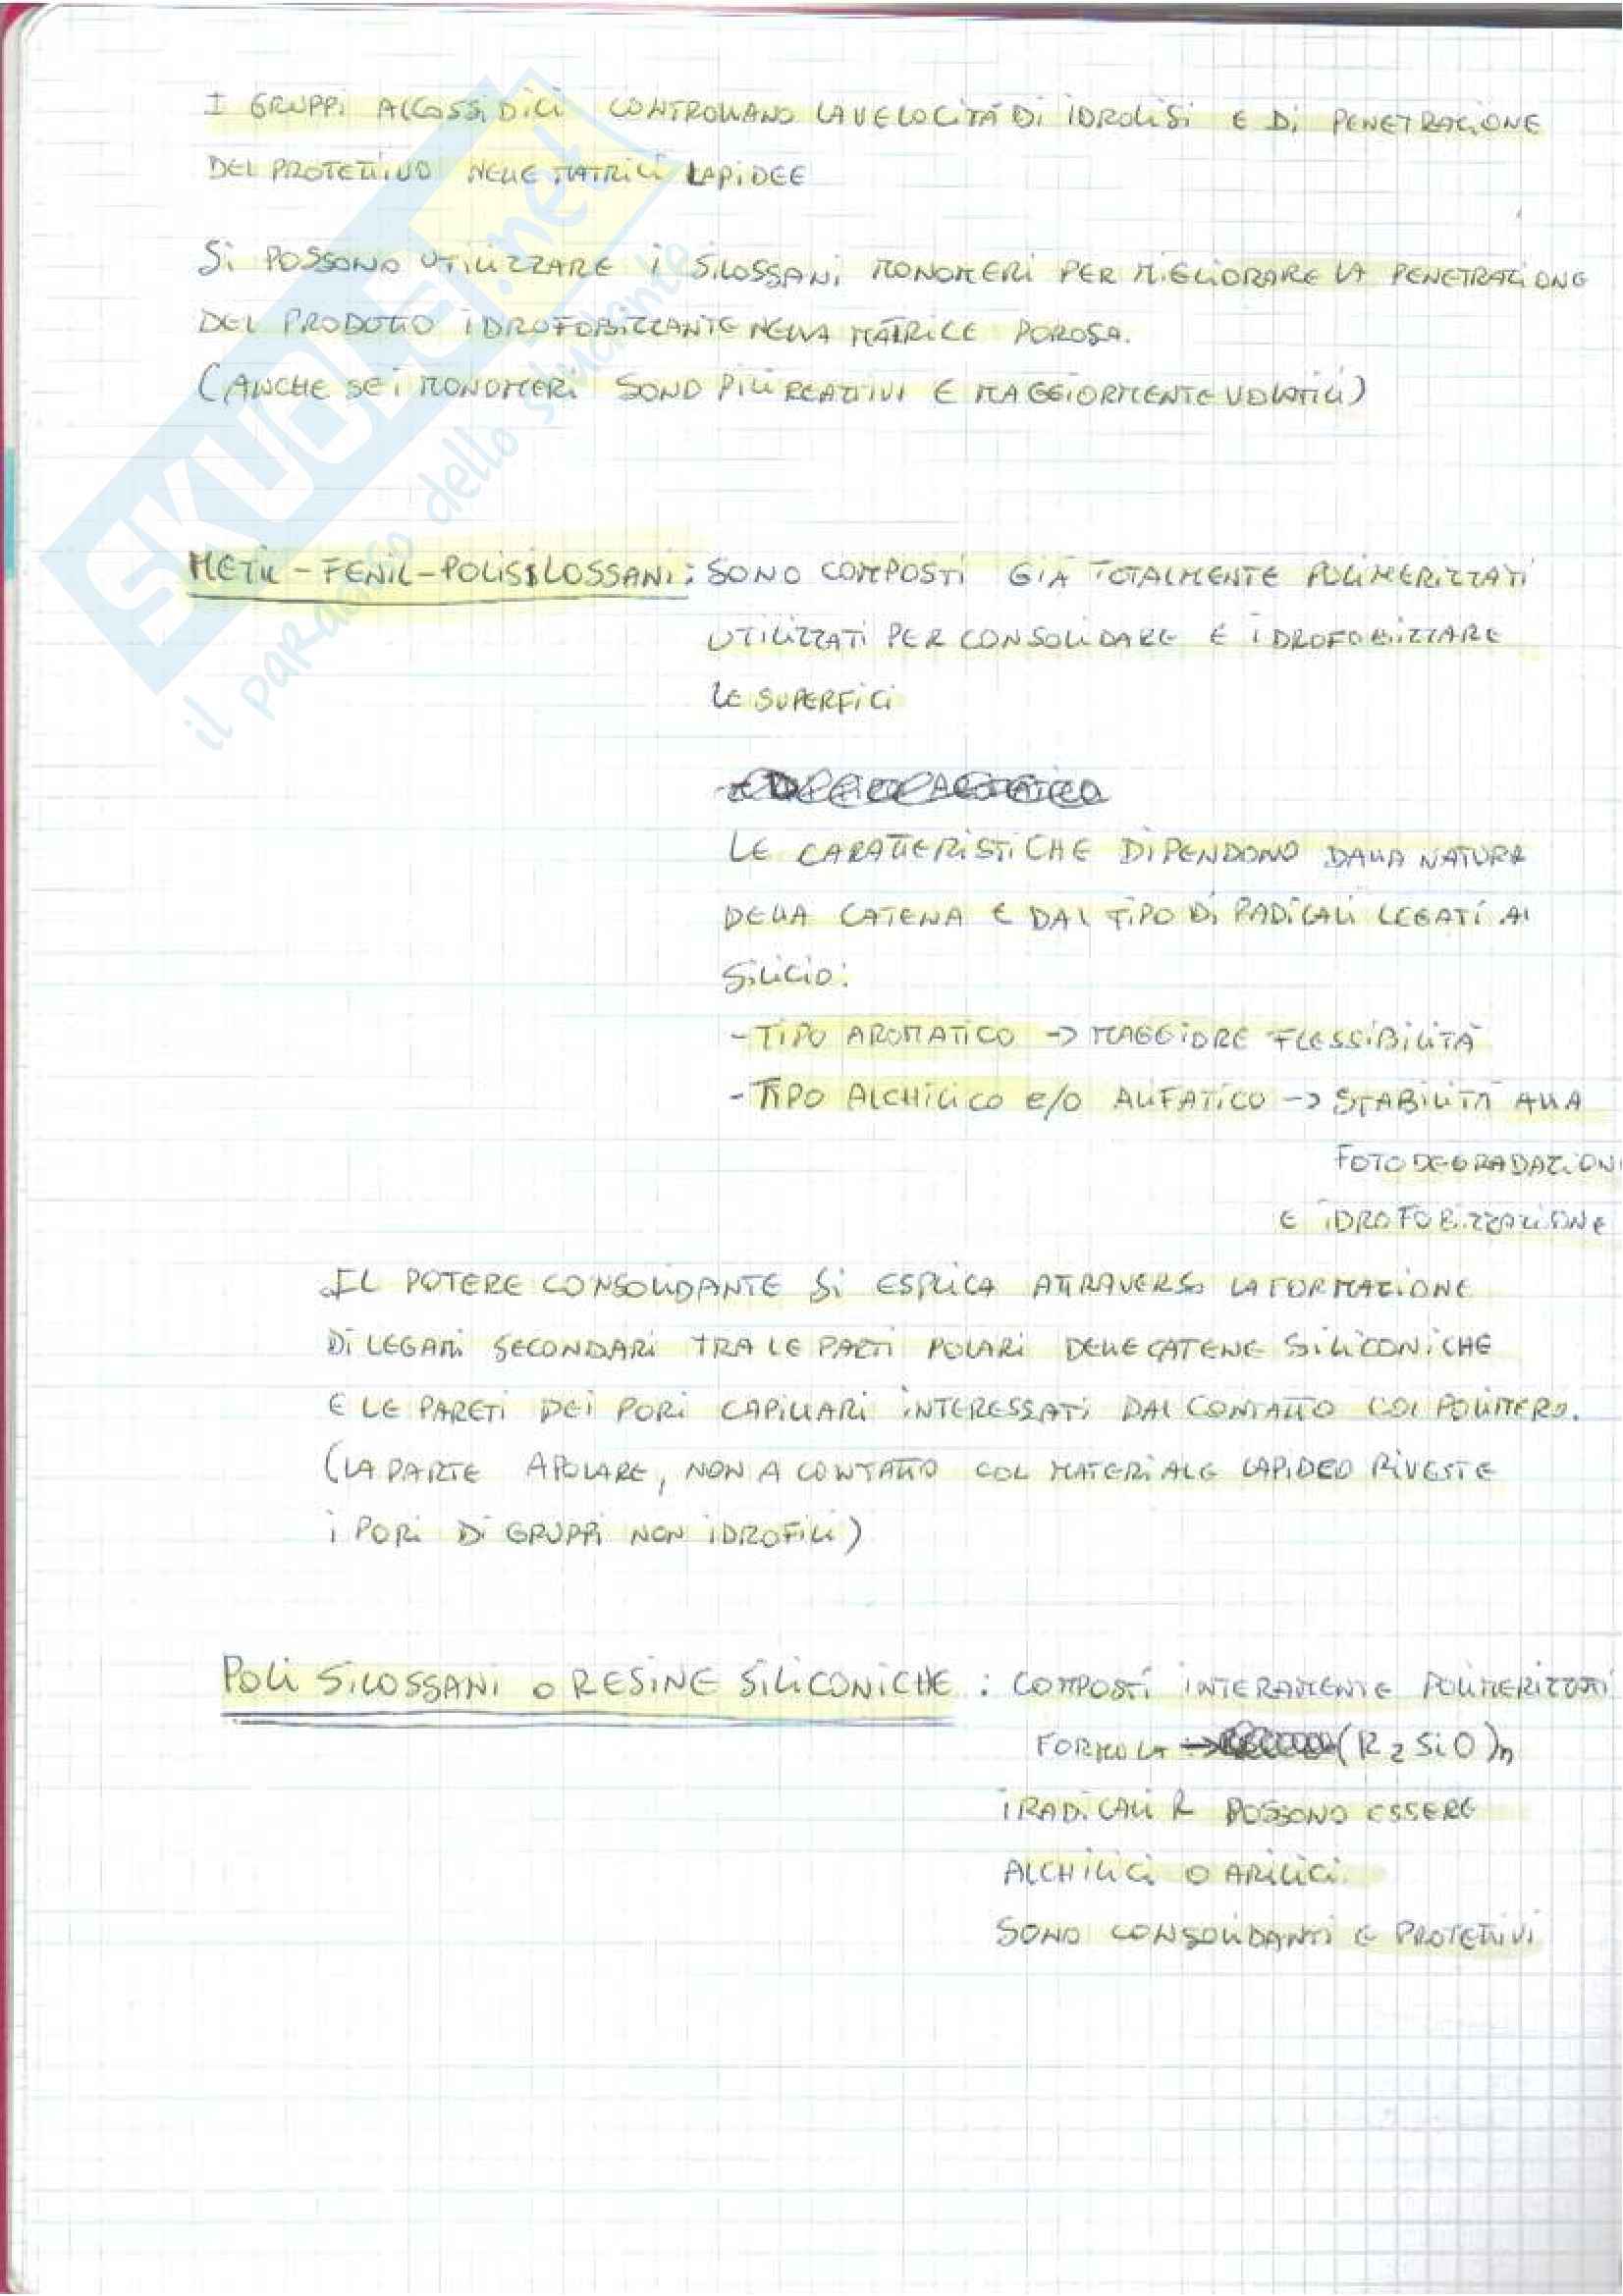 I GRUPPI ALCOSSIDICI CONTROLLANO LA VELOCITÀ DI IDROLISI E DI PENETRAZIONE
DEL PROTETTIVO NELLE MATRICI LAPIDEE
SI POSSONO UTILIZZARE I SILOSSANI MONOMERI PER MIGLIORARE LA PENETRAZIONE
DEL PRODOTTO IDROFOBIZZANTE NELLA MATRICE POROSA.
(ANCHE SE I MONOMERI SONO PIÙ REATTIVI E MAGGIORMENTE VOLATILI)
SKUOLA.net
il paradiso dello studente
METIL-FENIL-POLISILOSSANI: SONO COMPOSTI GIÀ TOTALMENTE POLIMERIZZATI
UTILIZZATI PER CONSOLIDARE E IDROFOBIZZARE
LE SUPERFICI
LE CARATTERISTICHE DIPENDONO DALLA NATURA
DELLA CATENA E DAL TIPO DI RADICALI LEGATI AL
SILICIO:
- TIPO AROMATICO -> MAGGIORE FLESSIBILITÀ
- TIPO ALCHILICO E/O ALIFATICO -> STABILITÀ ALLA
FOTODEGRADAZION
E IDROFOBIZZAZIONE
IL POTERE CONSOLIDANTE SI ESPLICA ATTRAVERSO LA FORMAZIONE
DI LEGAMI SECONDARI TRA LE PARTI POLARI DELLE CATENE SILICONICHE
E LE PARETI DEI PORI CAPILLARI INTERESSATI DAL CONTATTO COL POLIMERO.
(LA PARTE APOLARE, NON A CONTATTO COL MATERIALE LAPIDEO RIVESTE
I PORI DI GRUPPI NON IDROFILI)
POLISILOSSANI O RESINE SILICONICHE: COMPOSTI INTERAMENTE POLIMERIZZATI
FORMULA -> (R2SiO)n
I RADICALI R POSSONO ESSERE
ALCHILICI O ARILICI.
SONO CONSOLIDANTI E PROTETTIVI